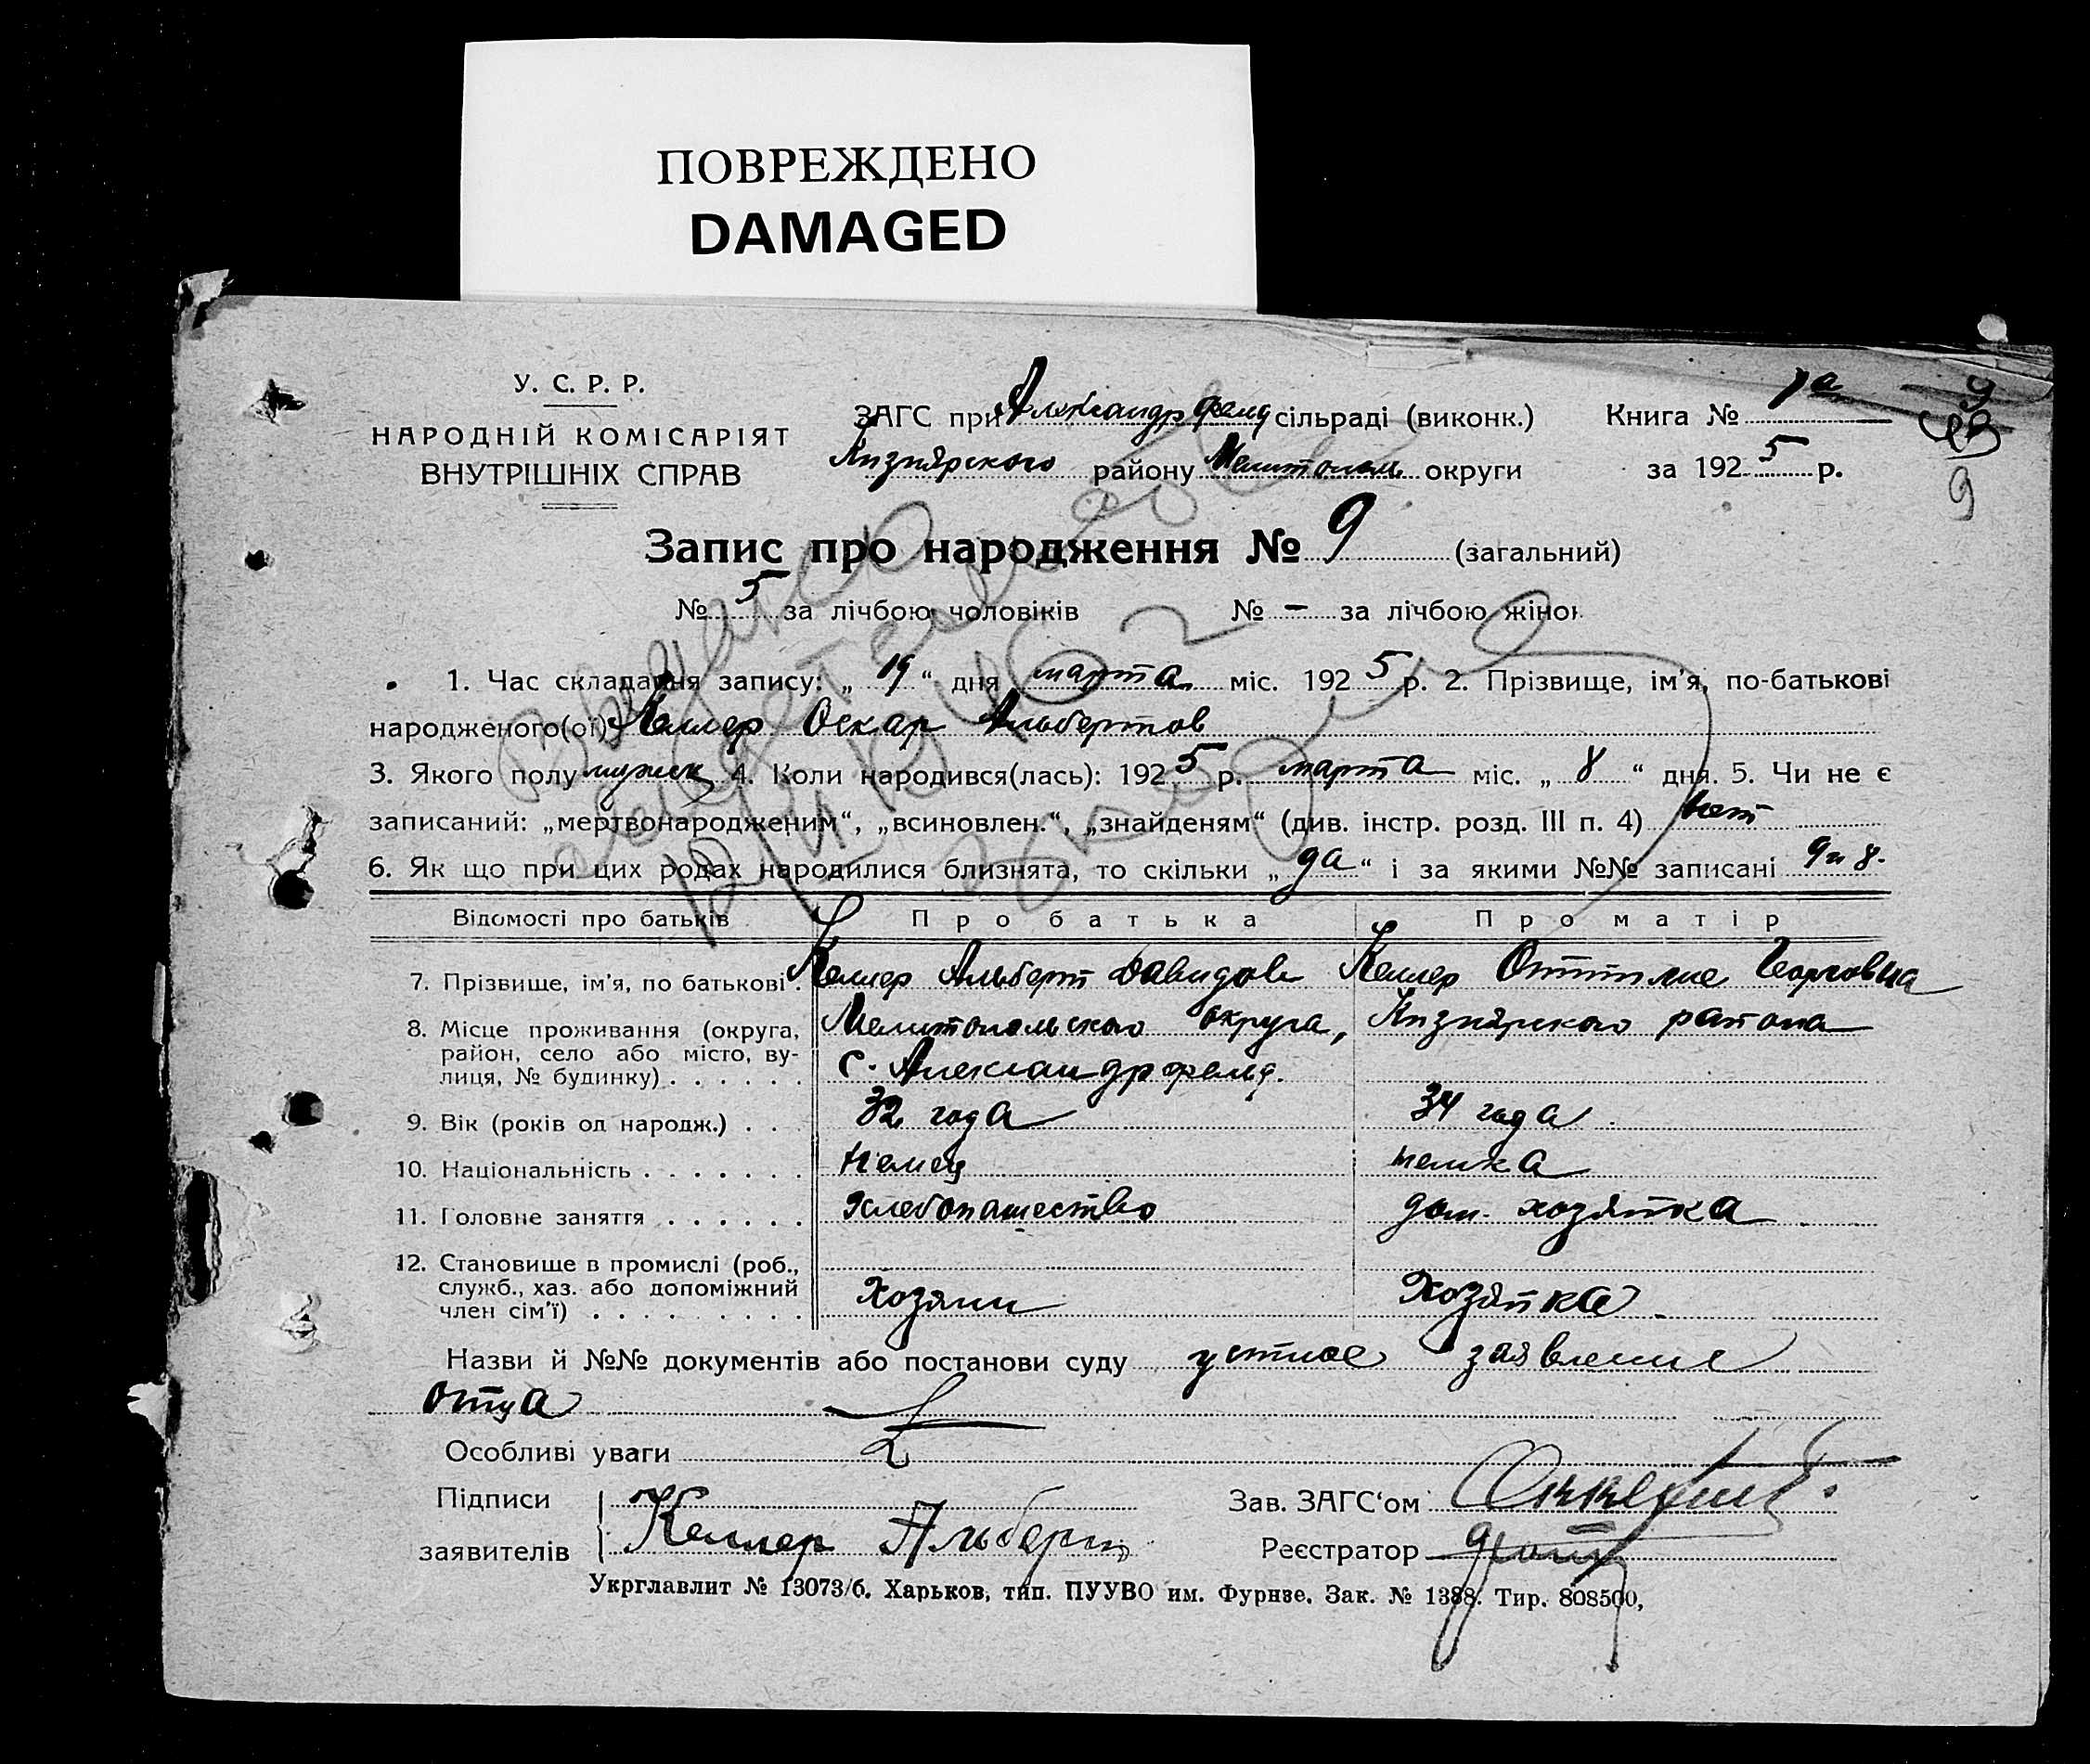 ПОВРЕЖДЕНО
DAMAGED
У. С. Р. Р.
НАРОДНІЙ КОМІСАРІЯТ
ВНУТРІШНІХ СПРАВ
ЗАГС при Александрфельд сільраді (виконк.)
Кизиярского району Мелитополь округи
Книга № 1а
за 1925 р.
9
9
Запис про народження № 9 (загальний)
№ 5 за лічбою чоловіків № – за лічбою жінок
1. Час складання запису: „ 19 “ дня марта міс. 1925 р. 2. Прізвище, ім'я, по-батькові
народженого(ої) Келлер Оскар Альбертов
3. Якого полу мужск 4. Коли народився(лась): 1925 р. марта міс. „ 8 “ дня. 5. Чи не є
записаний: „мертвонародженим“, „всиновлен.“, „знайденям“ (див. інстр. розд. III п. 4) нет
6. Як що при цих родах народилися близнята, то скільки „ да “ і за якими №№ записані 9 и 8.
Відомості про батьків Про батька Про матір
7. Прізвище, ім'я, по батькові . Келлер Альберт Давидов Келлер Оттилие Георговна
8. Місце проживання (округа, Мелитопольского округа, Кизиярского раиона
район, село або місто, ву- с. Александрфельд.
лиця, № будинку) . . . . . .
9. Вік (років од народж.) . . . 32 года 34 года
10. Національність . . . . . . . Немец немка
11. Головне заняття . . . . . . Хлебопашество дом. хозяйка
12. Становище в промислі (роб.,
служб., хаз. або допоміжний Хозяин Хозяйка
член сім'ї) . . . . . . . . .
Назви й №№ документів або постанови суду устное заявление
отца
Особливі уваги
Підписи
заявителів Келлер Альберт
Зав. ЗАГС‘ом
Реєстратор
Укрглавлит № 13073/б. Харьков, тип. ПУУВО им. Фурнзе. Зак. № 1388. Тир. 808500,